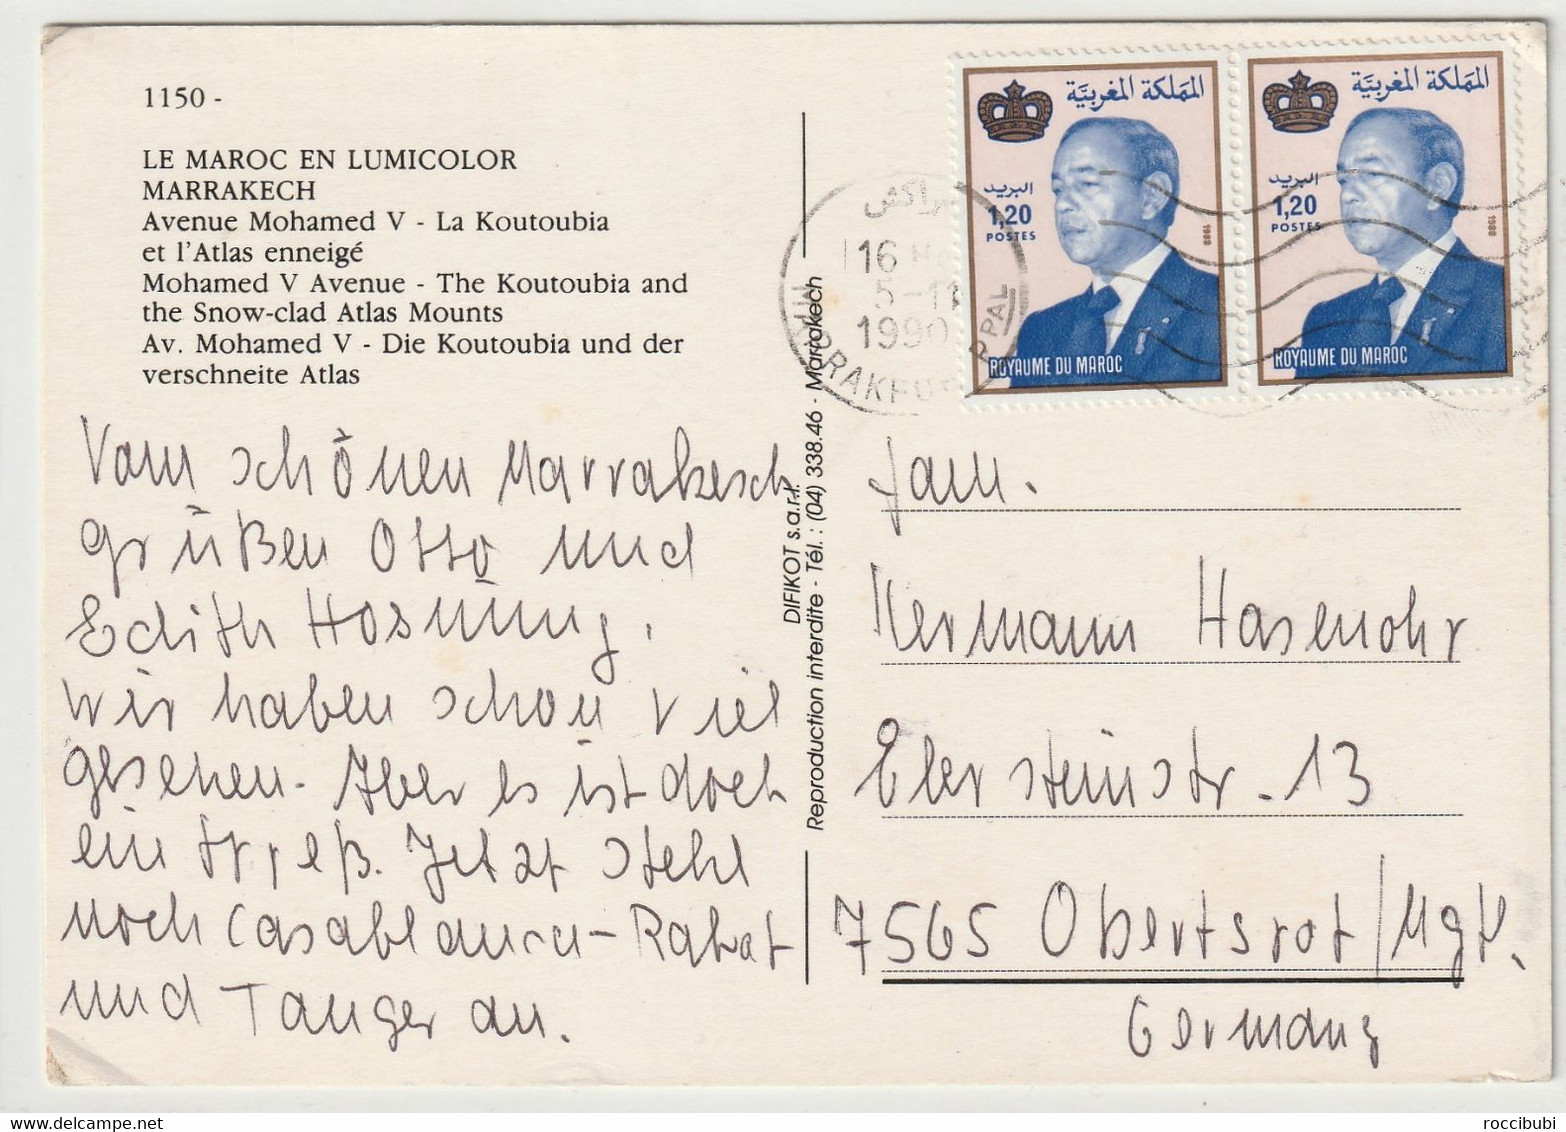 1150 -
LE MAROC EN LUMICOLOR
MARRAKECH
Avenue Mohamed V - La Koutoubia
et l'Atlas enneigé
Mohamed V Avenue - The Koutoubia and
the Snow-clad Atlas Mounts
Av. Mohamed V - Die Koutoubia und der
verschneite Atlas
Vom schönen Marrakesch
grüßen Otto und
Edith Hosnung.
Wir haben schon viel
gesehen. Aber es ist doch
ein Streß. Jetzt steht
noch Casablanca - Rabat
und Tanger an.
DIFIKOT s.a.r.l.
Reproduction interdite - Tél. : (04) 338.46 - Marrakech
المملكة المغربية
البريد
1,20
POSTES
1988
ROYAUME DU MAROC
المملكة المغربية
البريد
1,20
POSTES
1988
ROYAUME DU MAROC
مراكش
16
5-11
1990
PPAL
Fam.
Hermann Hasenohr
Ebersteinstr. 13
7565 Obertsrot/Mgt.
Germany
roccibubi